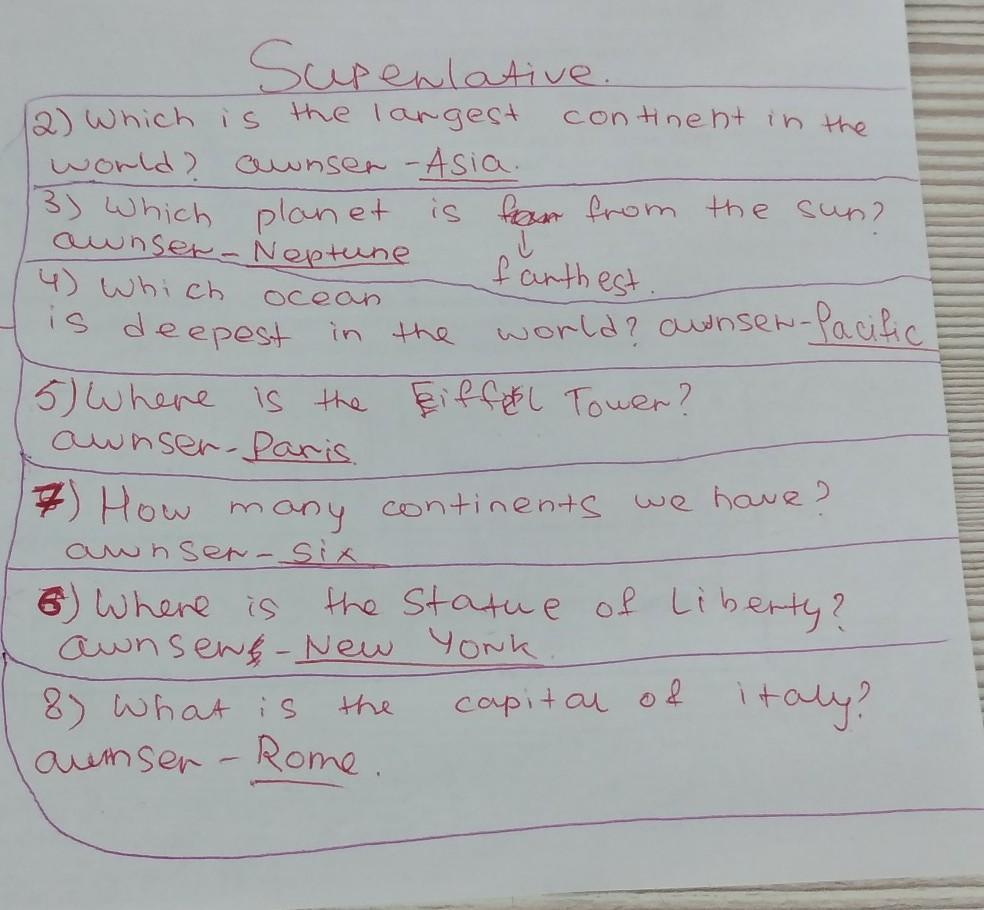 Superlative.
2) Which is the largest continent in the
world? awnser - Asia.
3) Which planet is far from the sun?
awnser - Neptune
↓
farthest.
4) Which ocean
is deepest in the world? awnser - Pacific
5) Where is the Eiffel Tower?
awnser - Paris.
7) How many continents we have?
awnser - six
6) Where is the Statue of Liberty?
awnser - New York.
8) What is the capital of italy?
awnser - Rome.